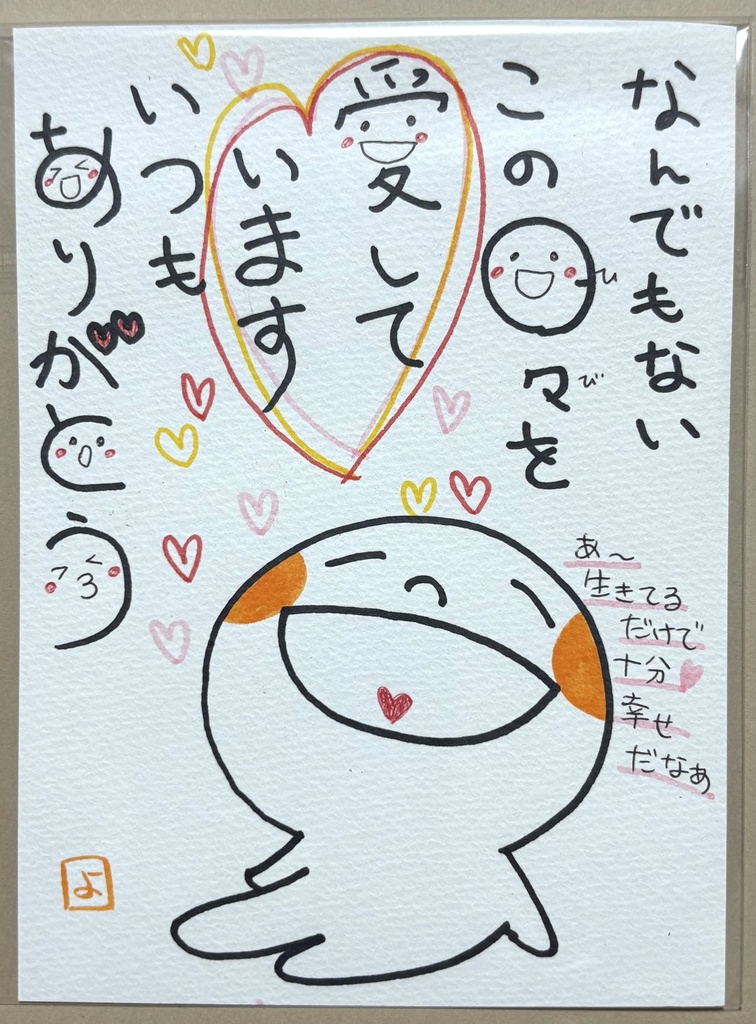 なんでもない
この日々を
ひ
び
愛して
います
いつも
ありがとう
あ〜
生きてる
だけで
十分
幸せ
だなぁ
よ